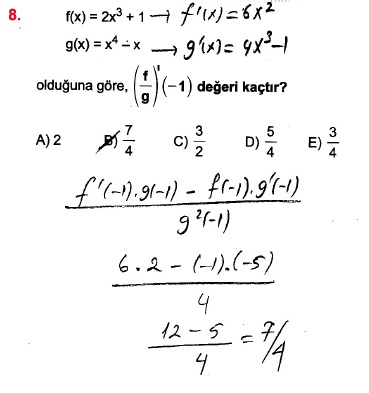 8. f(x) = 2x³ + 1 → f'(x) = 6x²
g(x) = x⁴ - x → g'(x) = 4x³-1
olduğuna göre, (f/g)'(-1) değeri kaçtır?
A) 2 B) 7/4 C) 3/2 D) 5/4 E) 3/4
f'(-1).g(-1) - f(-1).g'(-1)
g²(-1)
6.2 - (-1).(-5)
4
12 - 5
4
= 7/4